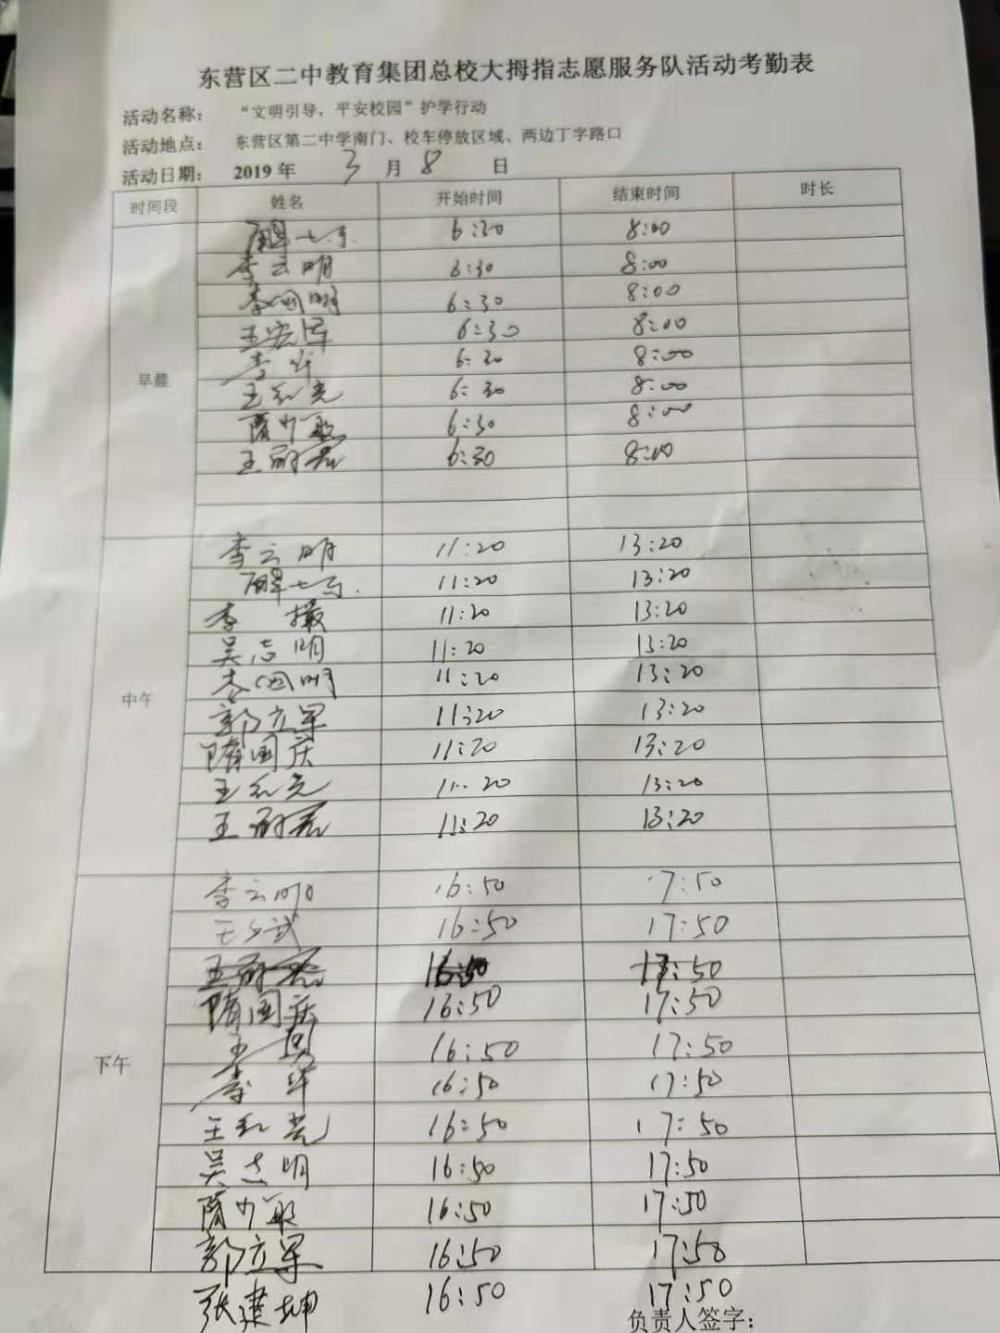 东营区二中教育集团总校大拇指志愿服务队活动考勤表
活动名称: “文明引导,平安校园”护学行动
活动地点: 东营区第二中学南门、校车停放区域、两边丁字路口
活动日期: 2019年 3月 8 日
时间段 姓名 开始时间 结束时间 时长
早晨
6:30 8:00
李云明 6:30 8:00
李国明 6:30 8:00
王宏军 6:30 8:00
李华 6:30 8:00
王红光 6:30 8:00
隋少敏 6:30 8:00
王 6:30 8:00
中午
李云明 11:20 13:20
11:20 13:20
李 11:20 13:20
吴志明 11:20 13:20
李国明 11:20 13:20
郭立军 11:20 13:20
隋国庆 11:20 13:20
王红光 11:20 13:20
王 11:20 13:20
下午
李云明 16:50 17:50
王 武 16:50 17:50
王 16:50 17:50
隋国庆 16:50 17:50
王勇 16:50 17:50
李华 16:50 17:50
王红光 16:50 17:50
吴志明 16:50 17:50
隋少敏 16:50 17:50
郭立军 16:50 17:50
张建坤 16:50 17:50
负责人签字: